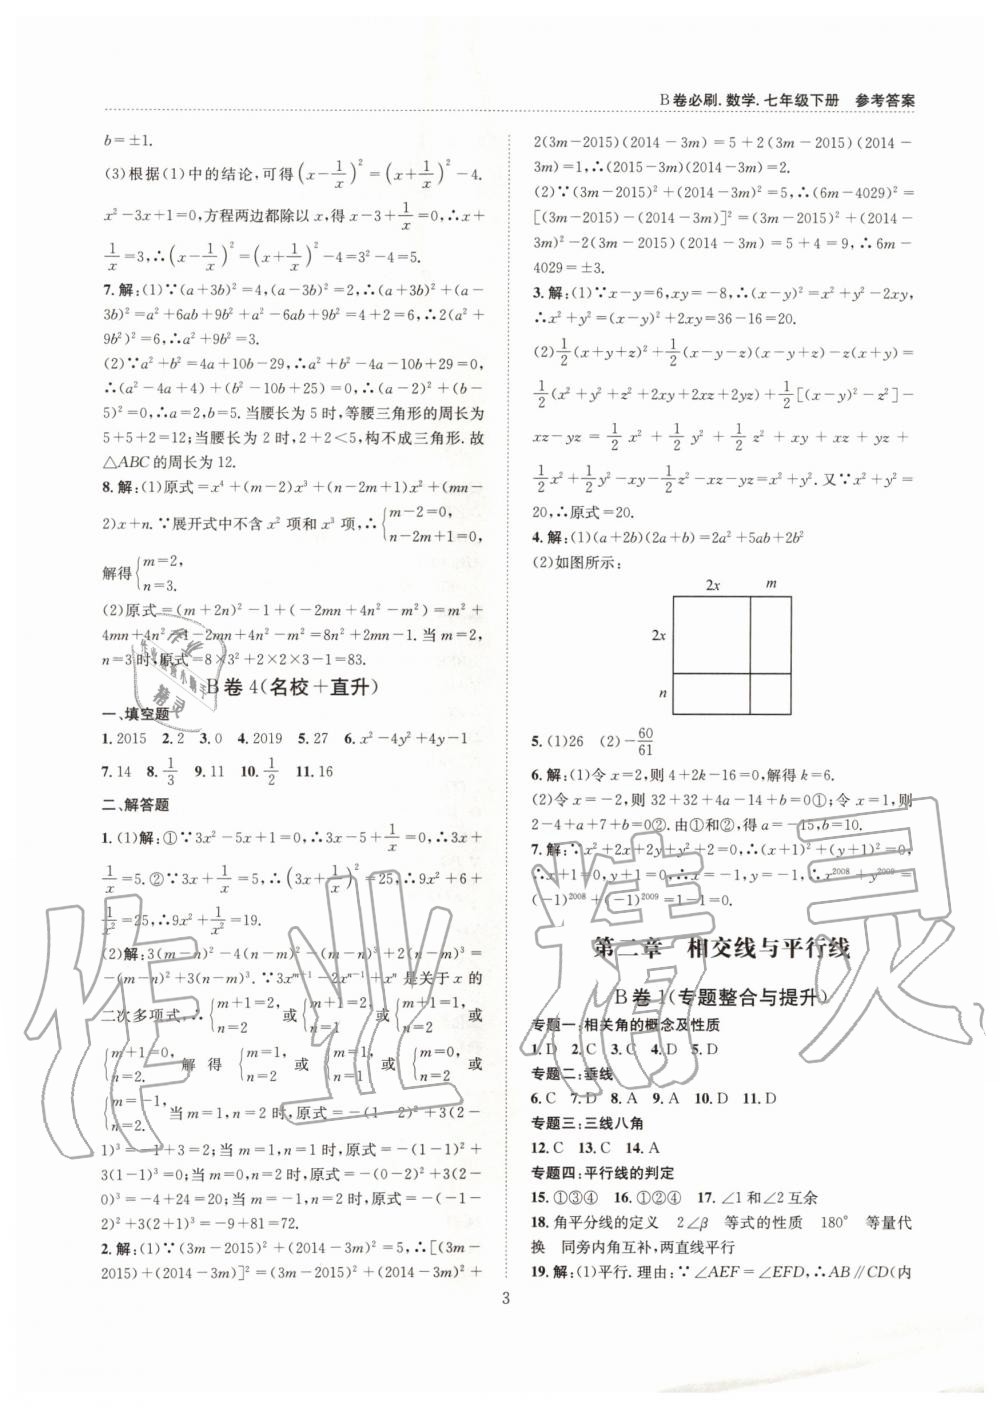 B卷必刷.数学.七年级下册 参考答案
b=±1.
(3)根据(1)中的结论,可得(x-1/x)²=(x+1/x)²-4.
x²-3x+1=0,方程两边都除以x,得x-3+1/x=0,∴x+
1/x=3,∴(x-1/x)²=(x+1/x)²-4=3²-4=5.
7.解:(1)∵(a+3b)²=4,(a-3b)²=2,∴(a+3b)²+(a-
3b)²=a²+6ab+9b²+a²-6ab+9b²=4+2=6,∴2(a²+
9b²)=6,∴a²+9b²=3.
(2)∵a²+b²=4a+10b-29,∴a²+b²-4a-10b+29=0,
∴(a²-4a+4)+(b²-10b+25)=0,∴(a-2)²+(b-
5)²=0,∴a=2,b=5.当腰长为5时,等腰三角形的周长为
5+5+2=12;当腰长为2时,2+2<5,构不成三角形.故
△ABC的周长为12.
8.解:(1)原式=x⁴+(m-2)x³+(n-2m+1)x²+(mn-
2)x+n.∵展开式中不含x²项和x³项,∴{m-2=0, n-2m+1=0,
解得{m=2, n=3.
(2)原式=(m+2n)²-1+(-2m+4n²-m²)=m²+
4mn+4n²-1-2mn+4n²-m²=8n²+2mn-1.当m=2,
n=3时,原式=8×3²+2×2×3-1=83.
B卷4(名校+直升)
一、填空题
1.2015 2.2 3.0 4.2019 5.27 6.x²-4y²+4y-1
7.14 8.1/3 9.11 10.1/2 11.16
二、解答题
1.(1)解:①∵3x²-5x+1=0,∴3x-5+1/x=0,∴3x+
1/x=5.②∵3x+1/x=5,∴(3x+1/x)²=25,∴9x²+6+
1/x²=25,∴9x²+1/x²=19.
(2)解:3(m-n)²-4(n-m)²-(m-n)³-2(n-m)³=
-(m-n)²+(n-m)³.∵3xᵐ⁺¹-2xⁿ⁻¹+xⁿ是关于x的
二次多项式,∴{m+1=2, n=2 或{m+1=1, n=2 或{m+1=2, n=1 或
{m+1=0, n=2. 解得{m=1, n=2 或{m=0, n=2 或{m=1, n=1 或
{m=-1, n=2. 当m=1,n=2时,原式=-(1-2)²+(2-
1)³=-1+3=2;当m=1,n=1时,原式=-(1-1)²+
3(1-1)³=0;当m=0,n=2时,原式=-(0-2)²+3(2-
0)³=-4+24=20;当m=-1,n=2时,原式=-(-1-
2)²+3(2+1)³=-9+81=72.
2.解:(1)∵(3m-2015)²+(2014-3m)²=5,∴[(3m-
2015)+(2014-3m)]²=(3m-2015)²+(2014-3m)²+
2(3m-2015)(2014-3m)=5+2(3m-2015)(2014-
3m)=1,∴(2015-3m)(2014-3m)=2.
(2)∵(3m-2015)²+(2014-3m)²=5,∴(6m-4029)²=
[(3m-2015)-(2014-3m)]²=(3m-2015)²+(2014-
3m)²-2(3m-2015)(2014-3m)=5+4=9,∴6m-
4029=±3.
3.解:(1)∵x-y=6,xy=-8,∴(x-y)²=x²+y²-2xy,
∴x²+y²=(x-y)²+2xy=36-16=20.
(2)1/2(x+y+z)²+1/2(x-y-z)(x-y+z)-z(x+y)=
1/2(x²+y²+z²+2xy+2xz+2yz)+1/2[(x-y)²-z²]-
xz-yz=1/2x²+1/2y²+1/2z²+xy+xz+yz+
1/2x²+1/2y²-xy-1/2z²-xz-yz=x²+y².又∵x²+y²=
20,∴原式=20.
4.解:(1)(a+2b)(2a+b)=2a²+5ab+2b²
(2)如图所示:
2x m
2x
n
5.(1)26 (2)-60/61
6.解:(1)令x=2,则4+2k-16=0,解得k=6.
(2)令x=-2,则32+32+4a-14+b=0①;令x=1,则
2-4+a+7+b=0②.由①和②,得a=-15,b=10.
7.解:∵x²+2x+2y+y²+2=0,∴(x+1)²+(y+1)²=0,
∴x+1=0,y+1=0,∴x=-1,y=-1,∴x²⁰⁰⁸+y²⁰⁰⁹=
(-1)²⁰⁰⁸+(-1)²⁰⁰⁹=1-1=0.
第二章 相交线与平行线
B卷1(专题整合与提升)
专题一:相关角的概念及性质
1.D 2.C 3.C 4.D 5.D
专题二:垂线
6.C 7.D 8.A 9.A 10.D 11.D
专题三:三线八角
12.C 13.C 14.A
专题四:平行线的判定
15.①③④ 16.①②④ 17.∠1和∠2互余
18.角平分线的定义 2∠β 等式的性质 180° 等量代
换 同旁内角互补,两直线平行
19.解:(1)平行.理由:∵∠AEF=∠EFD,∴AB∥CD(内
3
作业精灵